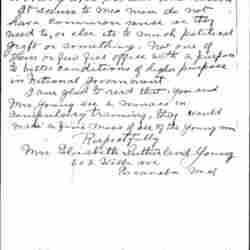 It seems to me men do not
have common sense as they
need to, or else its to much political
graft or something. Not one of
them or few fill office with a purpose
to better conditions of higher purpose
in National Government
I am glad to read that you and
Mrs Young see a menace in
compulsory training, they would
make a fine mess of all of the young men
Respectfully
Mrs Elizabeth Sutherland Young
602 Wills ave
Escanaba Mich